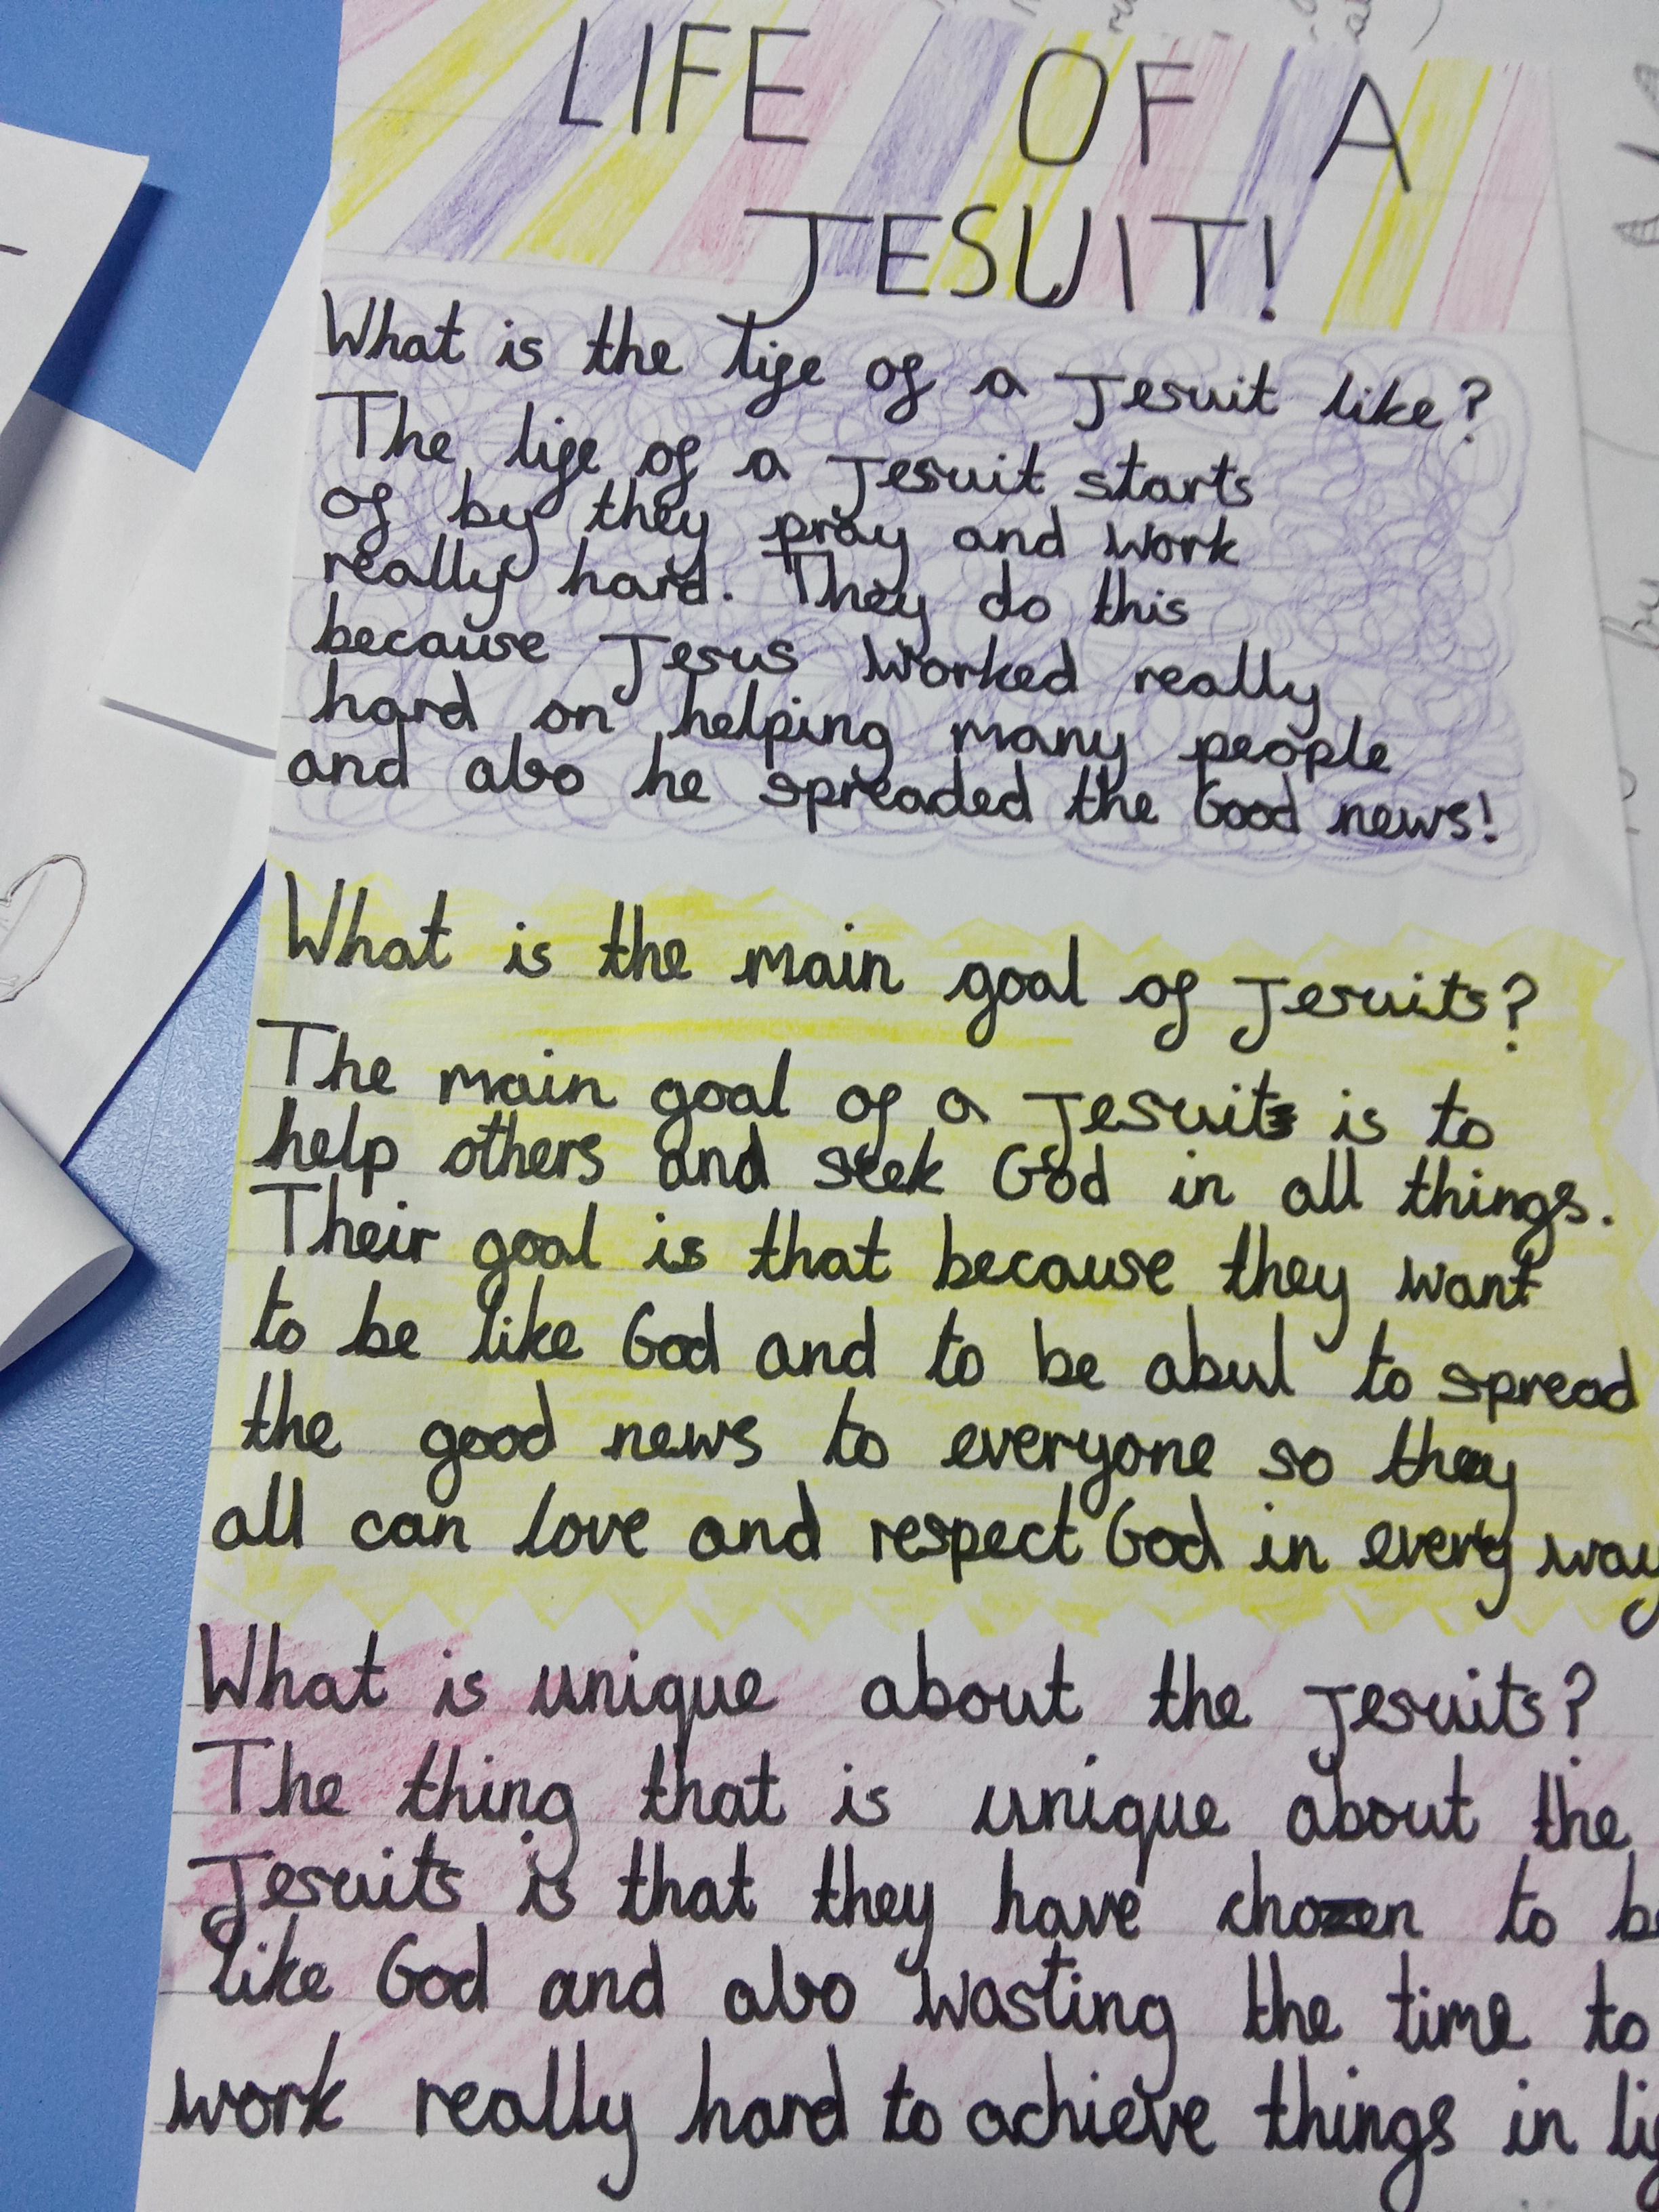 LIFE OF A
JESUIT!
What is the life of a Jesuit like?
The life of a Jesuit starts
of by they pray and work
really hard. They do this
because Jesus worked really
hard on helping many people
and also he spreaded the Good news!
What is the main goal of Jesuits?
The main goal of a Jesuits is to
help others and seek God in all things.
Their goal is that because they want
to be like God and to be abul to spread
the good news to everyone so they
all can love and respect God in every way
What is unique about the Jesuits?
The thing that is unique about the
Jesuits is that they have chozen to
like God and also wasting the time to
work really hard to achieve things in
by